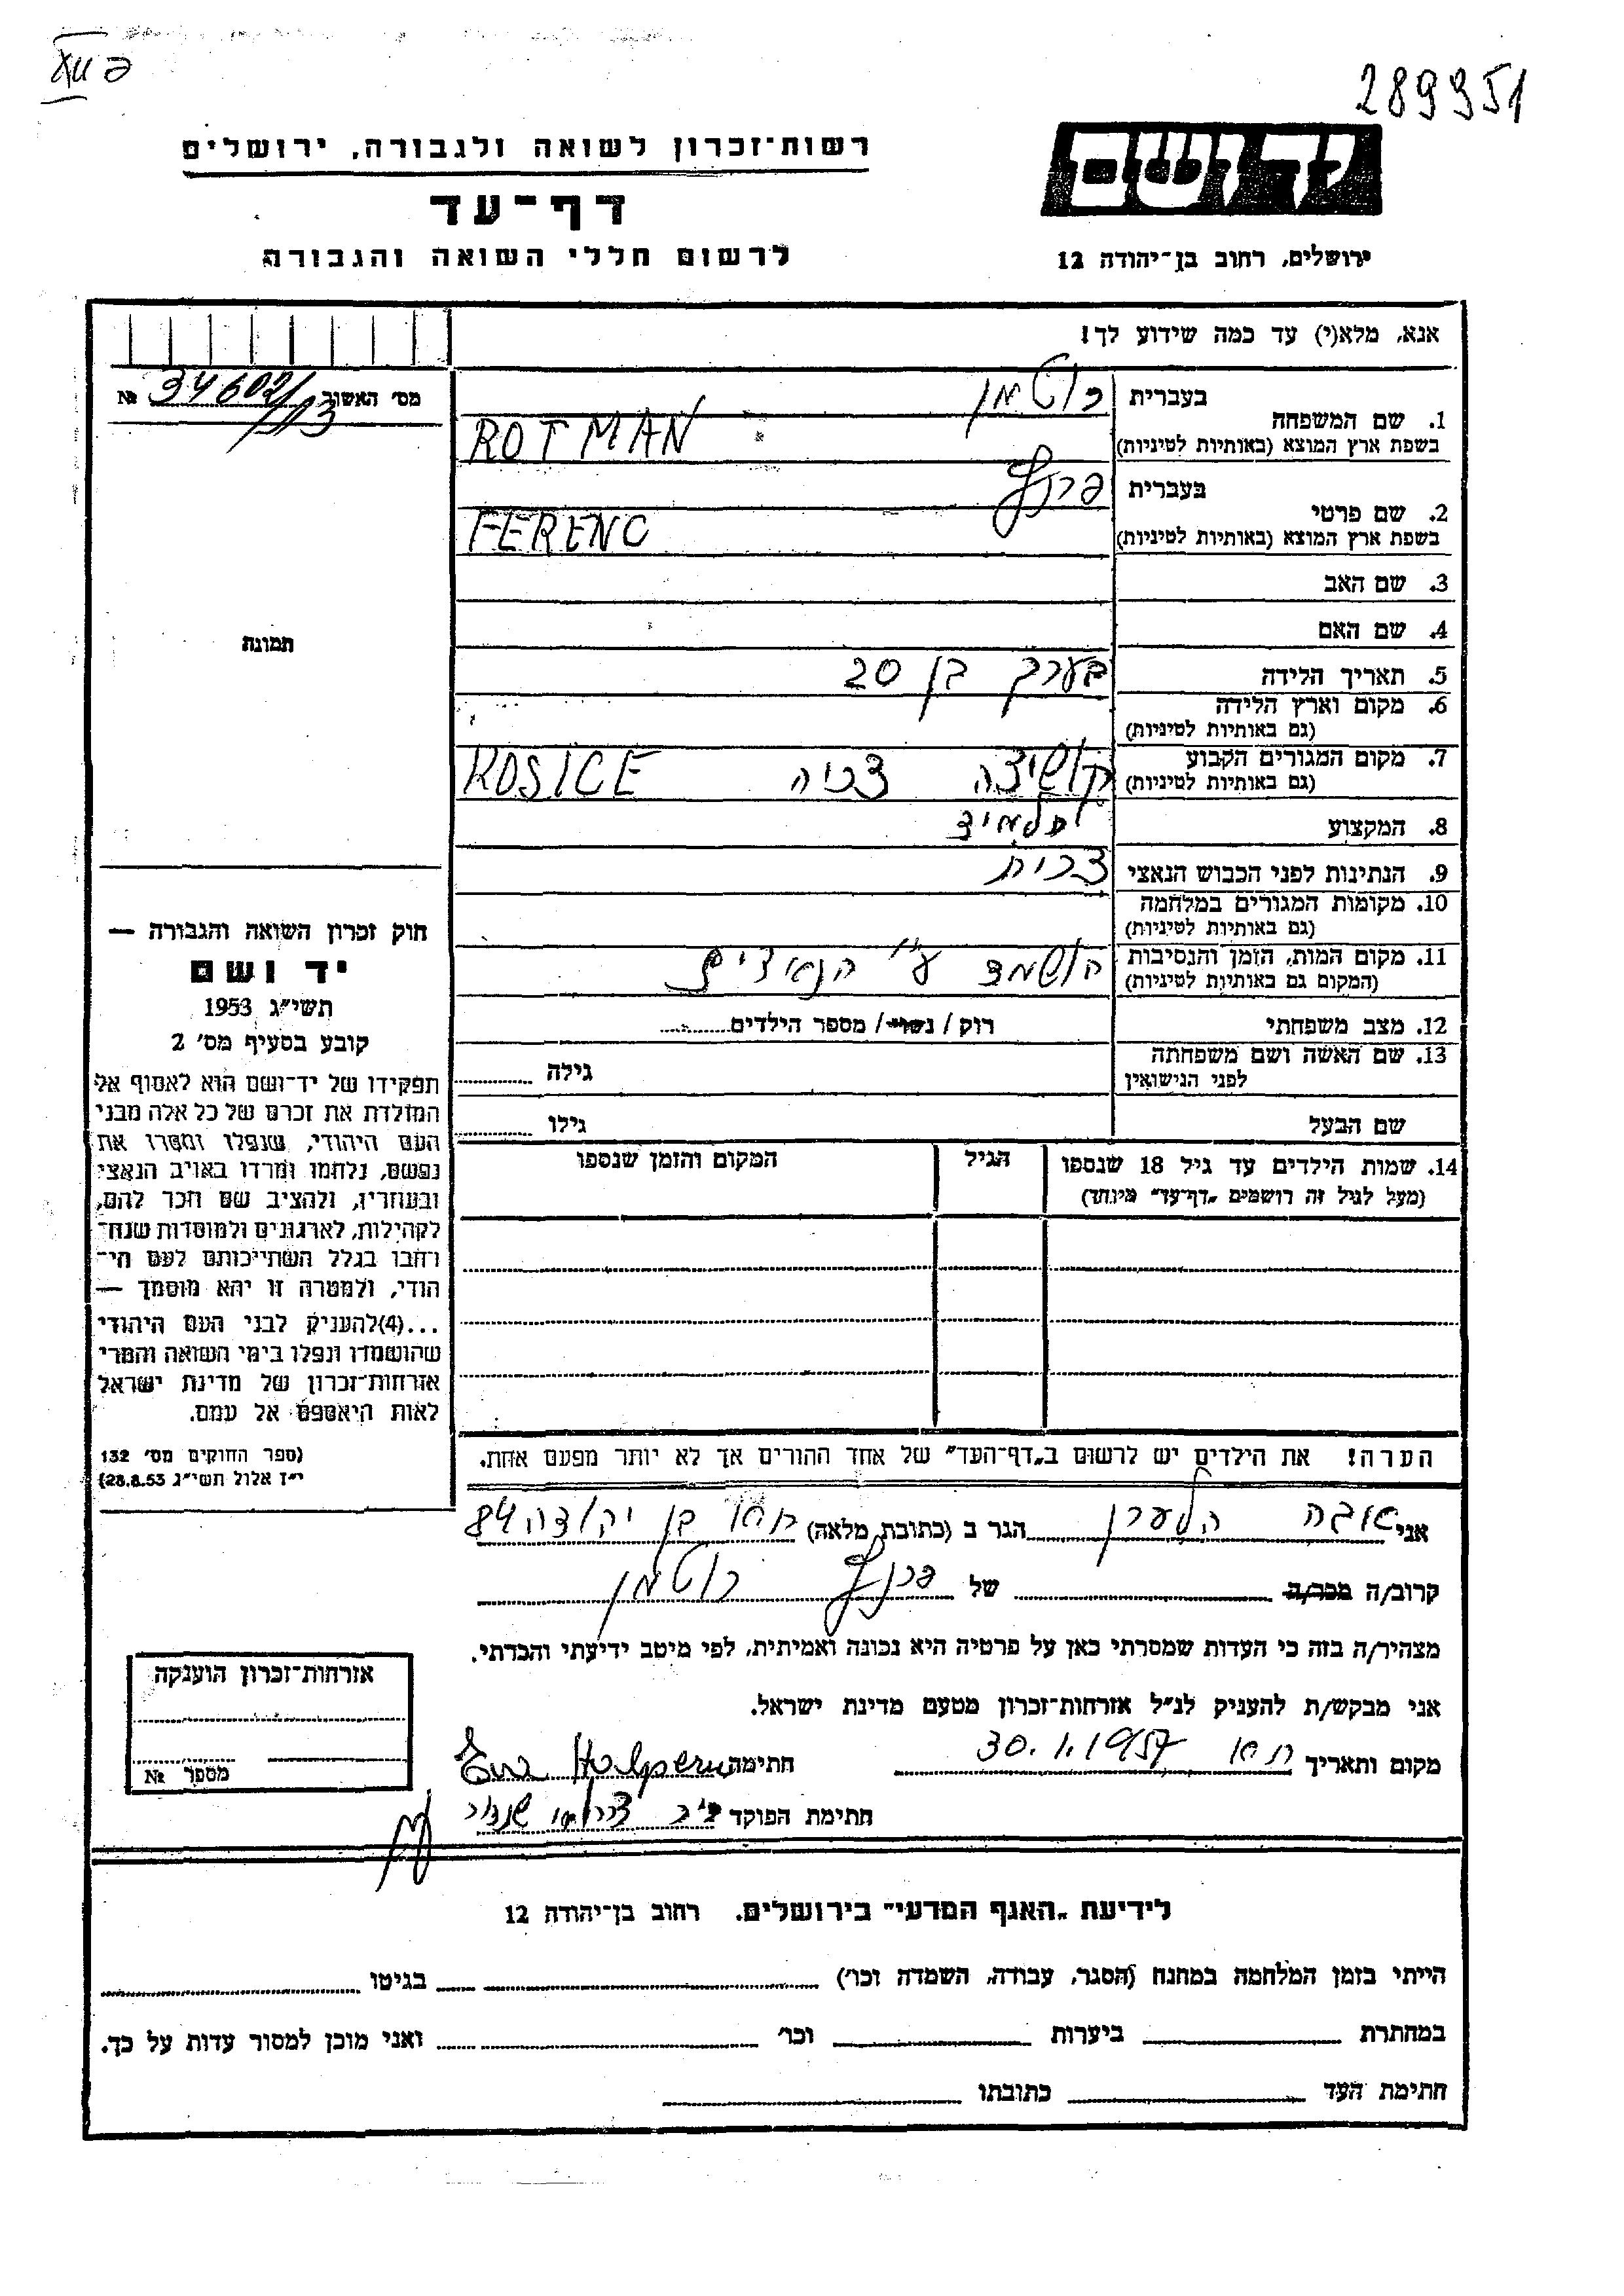 289951
רשות־זכרון לשואה ולגבורה, ירושלים
יד ושם
דף־עד
לרשום חללי השואה והגבורה
ירושלים, רחוב בן־יהודה 12
אנא, מלא(י) עד כמה שידוע לך!
מס׳ האשור № 34602/
1. שם המשפחה בעברית רוטמן
בשפת ארץ המוצא (באותיות לטיניות) ROTMAN
2. שם פרטי בעברית פרנץ
בשפת ארץ המוצא (באותיות לטיניות) FERENC
3. שם האב
4. שם האם
תמונה
5. תאריך הלידה בערך בן 20
6. מקום וארץ הלידה
(גם באותיות לטיניות)
7. מקום המגורים הקבוע קושיצה צכיה KOSICE
(גם באותיות לטיניות)
8. המקצוע תלמיד
9. הנתינות לפני הכבוש הנאצי צכית
10. מקומות המגורים במלחמה
(גם באותיות לטיניות)
11. מקום המות, הזמן והנסיבות הושמד ע״י הנאצים
(המקום גם באותיות לטיניות)
12. מצב משפחתי רוק / נשוי / מספר הילדים
13. שם האשה ושם משפחתה גילה
לפני הנישואין
שם הבעל גילו
14. שמות הילדים עד גיל 18 שנספו הגיל המקום והזמן שנספו
(מעל לגיל זה רושמים „דף־עד״ מיוחד)
חוק זכרון השואה והגבורה —
יד ושם
תשי״ג 1953
קובע בסעיף מס׳ 2
תפקידו של יד־ושם הוא לאסוף אל
המולדת את זכרם של כל אלה מבני
העם היהודי, שנפלו ומסרו את
נפשם, נלחמו ומרדו באויב הנאצי
ובעוזריו, ולהציב שם וזכר להם,
לקהילות, לארגונים ולמוסדות שנח־
רבו בגלל השתייכותם לעם הי־
הודי, ולמטרה זו יהא מוסמך —
...(4)להעניק לבני העם היהודי
שהושמדו ונפלו בימי השואה והמרי
אזרחות־זכרון של מדינת ישראל
לאות היאספם אל עמם.
(ספר החוקים מס׳ 132
י״ז אלול תשי״ג 28.8.53)
הערה! את הילדים יש לרשום ב„דף־העד״ של אחד ההורים אך לא יותר מפעם אחת.
אני אוה הלפרן הגר ב (כתובת מלאה) רחו בן יהודה 84
קרוב/ה מכר/ה של פרנץ רוטמן
מצהיר/ה בזה כי העדות שמסרתי כאן על פרטיה היא נכונה ואמיתית, לפי מיטב ידיעתי והכרתי.
אני מבקש/ת להעניק לנ״ל אזרחות־זכרון מטעם מדינת ישראל.
מקום ותאריך 30.1.1957 חתימה Eva Halpern
חתימת הפוקד
אזרחות־זכרון הוענקה
מספר №
לידיעת „האגף המדעי״ בירושלים. רחוב בן־יהודה 12
הייתי בזמן המלחמה במחנה (הסגר, עבודה, השמדה וכו׳) בגיטו
במחתרת ביערות וכו׳ ואני מוכן למסור עדות על כך.
חתימת העד כתובתו